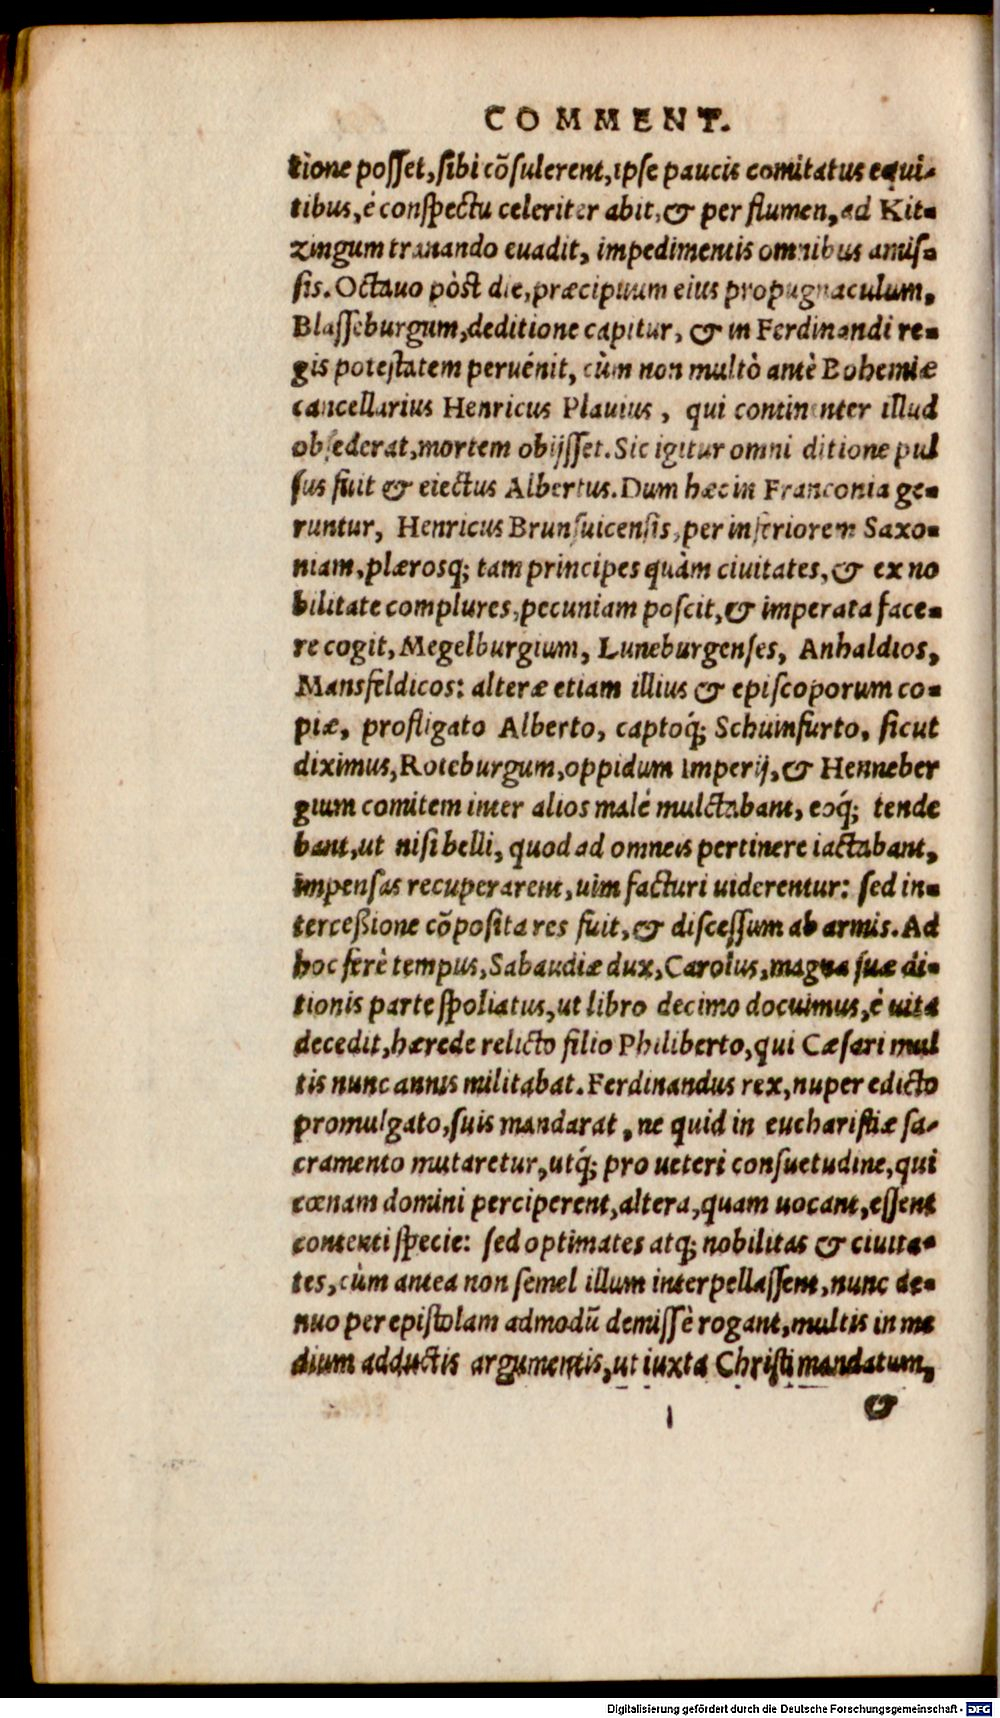 COMMENT.
tione posset, sibi cõsulerent, ipse paucis comitatus equi-
tibus, è conspectu celeriter abit, & per flumen, ad Kit-
zingum tranando euadit, impedimentis omnibus amis-
sis. Octauo pòst die, præcipuum eius propugnaculum,
Blasseburgum, deditione capitur, & in Ferdinandi re-
gis potestatem peruénit, cùm non multò antè Bohemiæ
cancellarius Henricus Plauius, qui continenter illud
obsederat, mortem obijsset. Sic igitur omni ditione pul
sus fuit & eiectus Albertus. Dum hæc in Franconia ge-
runtur, Henricus Brunsuicensis, per inferiorem Saxo-
niam, plærosq; tam principes quàm ciuitates, & ex no
bilitate complures, pecuniam poscit, & imperata face-
re cogit, Megelburgium, Luneburgenses, Anhaldios,
Mansfeldicos: alteræ etiam illius & episcoporum co-
piæ, profligato Alberto, captoq́; Schuinfurto, sicut
diximus, Roteburgum, oppidum Imperij, & Henneber
gium comitem inter alios malè mulctabant, eoq́; tende
bant, ut nisi belli, quod ad omneis pertinere iactabant,
impensas recuperarent, uim facturi uiderentur: sed in-
terceßione cõposita res fuit, & discessum ab armis. Ad
hoc ferè tempus, Sabaudiæ dux, Carolus, magna suæ di-
tionis parte spoliatus, ut libro decimo docuimus, è uita
decedit, hærede relicto filio Philiberto, qui Cæsari mul
tis nunc annis militabat. Ferdinandus rex, nuper edicto
promulgato, suis mandarat, ne quid in eucharistiæ sa-
cramento mutaretur, utq́; pro ueteri consuetudine, qui
cœnam domini perciperent, altera, quam uocant, essent
contenti specie: sed optimates atq; nobilitas & ciuita-
tes, cùm antea non semel illum interpellassent, nunc de-
nuo per epistolam admodũ demissè rogant, multis in me
dium adductis argumentis, ut iuxta Christi mandatum,
&
Digitalisierung gefördert durch die Deutsche Forschungsgemeinschaft - DFG